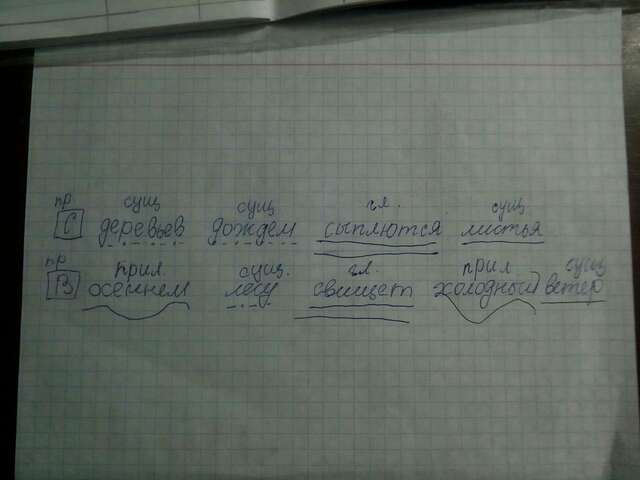 пр сущ сущ гл. сущ
С деревьев дождем сыплются листья
пр прил. сущ. гл. прил сущ
В осеннем лесу свищет холодный ветер